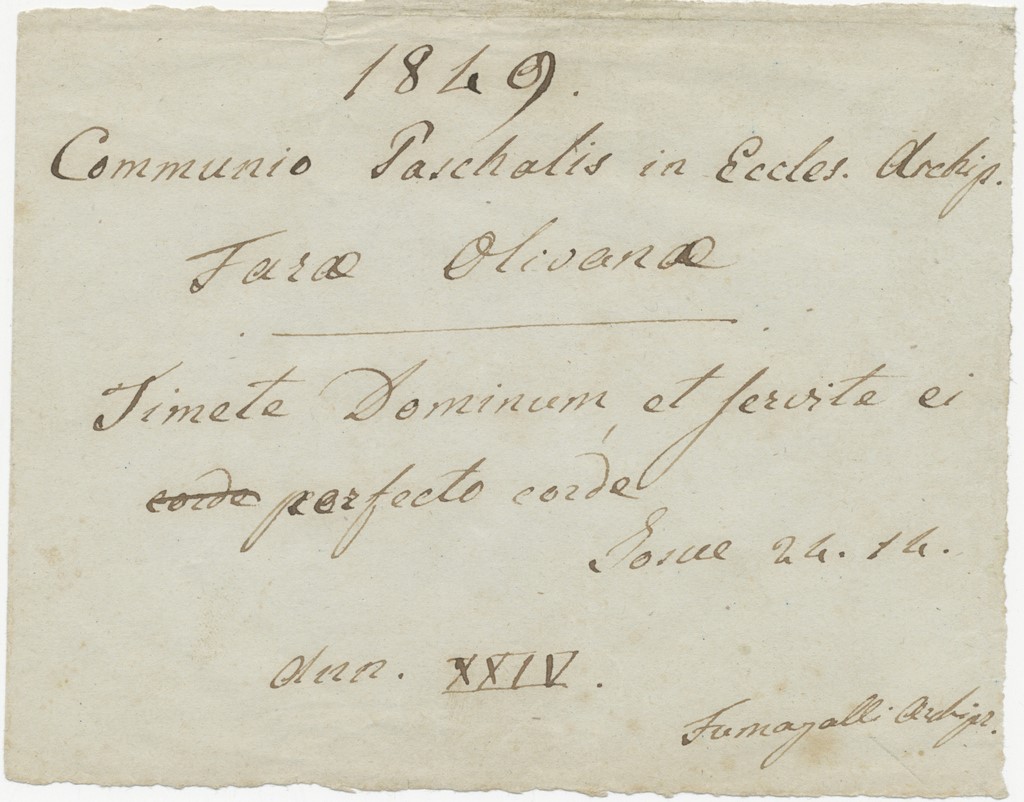 1849.
Communio Paschalis in Eccles. Archip.
Faræ Olivanæ
Timete Dominum, et servite ei
corde perfecto corde
Josue 24. 14.
Ann. XXIV.
Fumagalli Archipr.